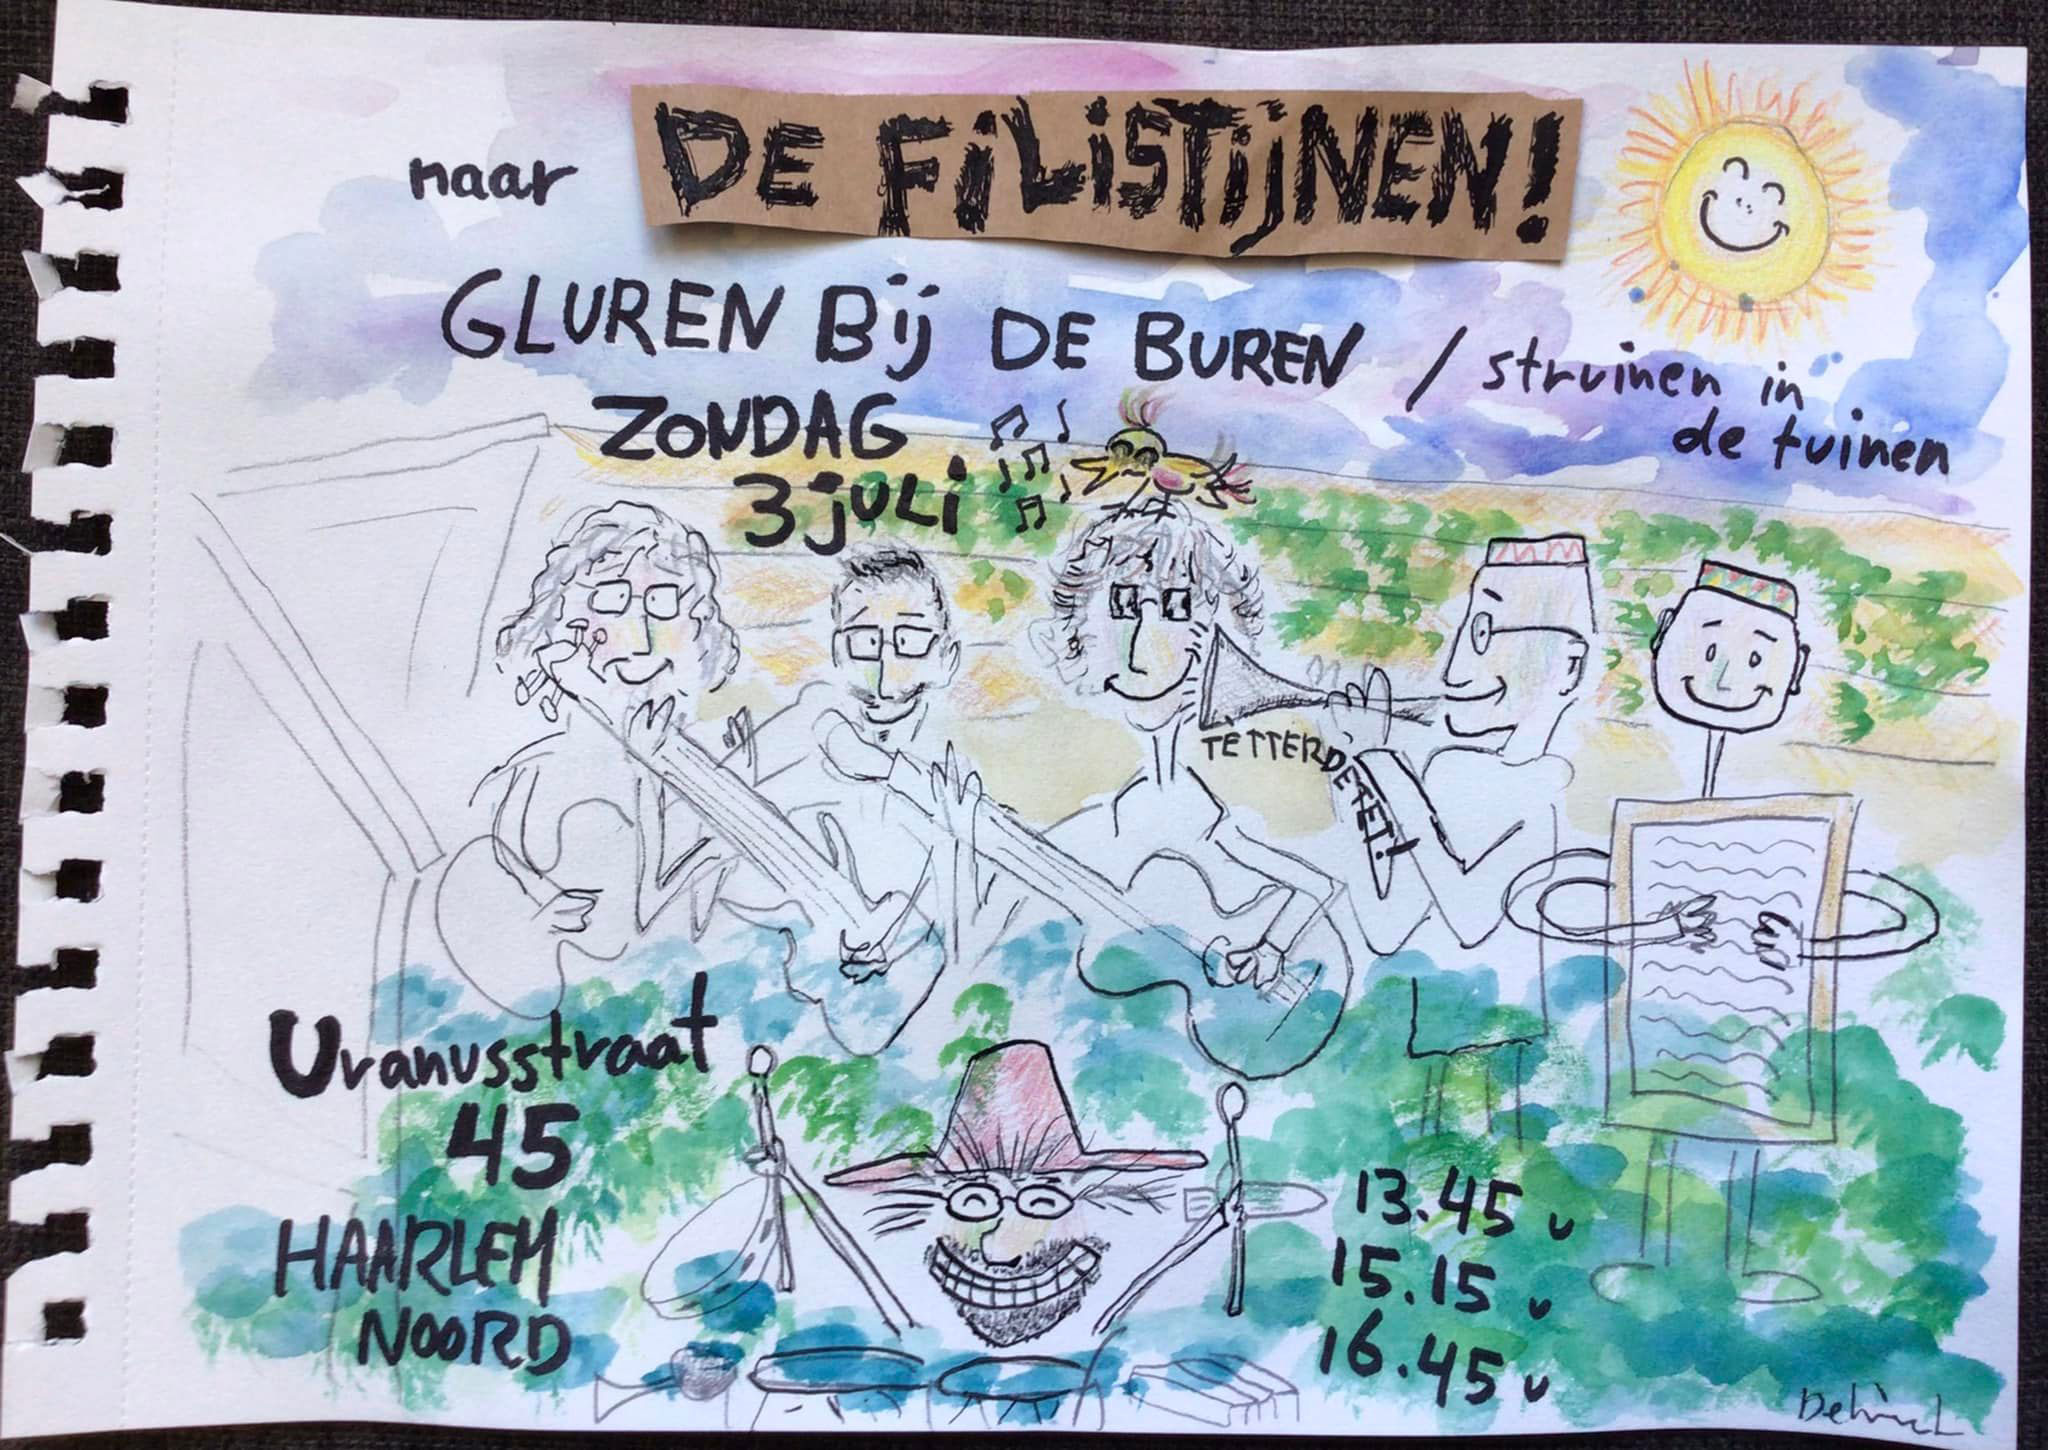 naar DE FiLiSTijNEN!
GLUREN Bij DE BUREN / struinen in
de tuinen
ZONDAG
3 juLi
TETTERDETET!
Uranusstraat
45
HAARLEM
NOORD
13.45 u
15.15 u
16.45 u